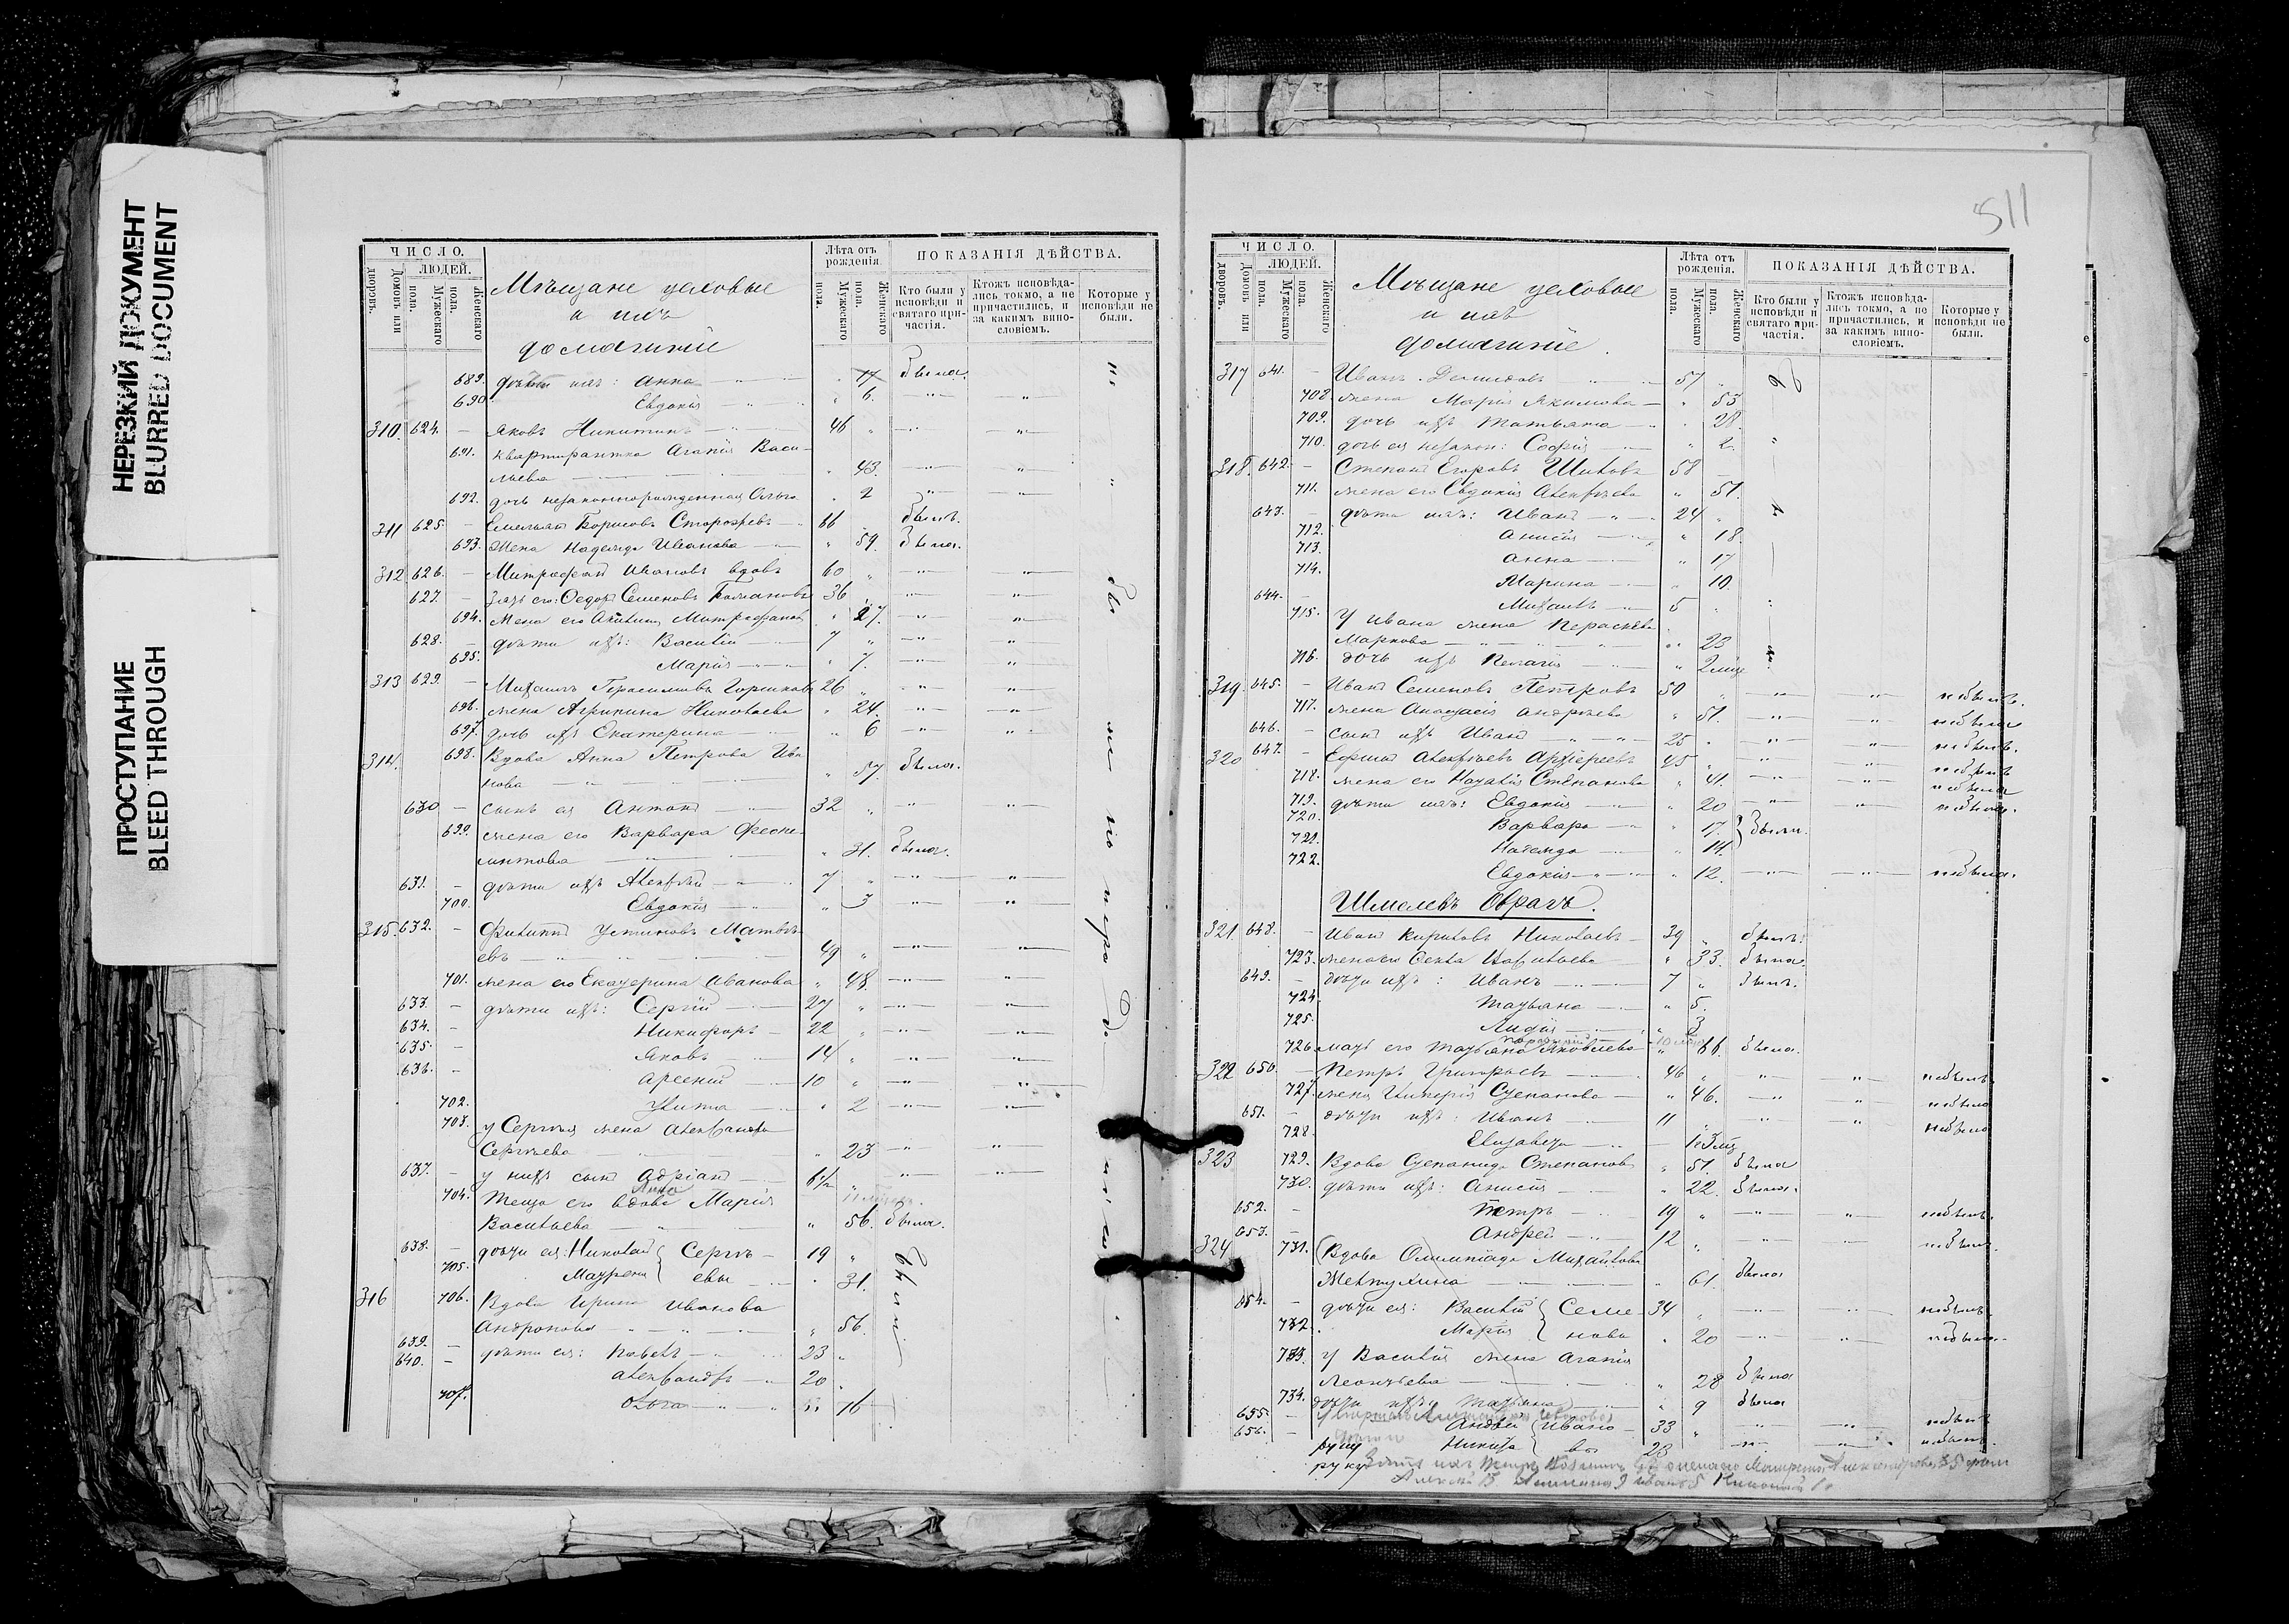 НЕРЕЗКИЙ ДОКУМЕНТ
BLURRED DOCUMENT
ПРОСТУПАНИЕ
BLEED THROUGH
ЧИСЛО.
ЛЮДЕЙ.
Дворовъ.
Домовъ или
Мужескаго пола.
Женскаго пола.
Мѣщане цеховые
и ихъ
домашніе
Лѣта отъ рожденія.
Мужескаго пола.
Женскаго пола.
ПОКАЗАНІЯ ДѢЙСТВА.
Кто были у исповѣди и святаго причастія.
Ктожъ исповѣдались токмо, а не причастились, и за какимъ винословіемъ.
Которые у исповѣди не были.
689. дѣти ихъ: Анна 17 была.
690 Евдокія 6.
310. 624. Яковъ Никитинъ 46
691. квартирантка Агапія Васи-
льева 43
692. дочь незаконнорожденная Ольга 2
311 625. Емельянъ Борисовъ Сторожевъ 66 былъ.
693. Жена Надежда Иванова 59. была.
312 626. Митрофанъ Ивановъ вдовъ 60
627. Зять его: Ѳедоръ Семеновъ 36
694. Жена его Акилина Митрофанова 27.
628. дѣти ихъ: Василій 7
695. Марія 7.
313 629. Михаилъ Герасимовъ Горшковъ 26
696. жена Агрипина Николаева 24.
697. дочь ихъ Екатерина 6
314. 698. Вдова Анна Петрова Ива
нова 57 была.
630 сынъ ея Антонъ 32
699. жена его Варвара Феоки-
литова 31. была.
631. дѣти ихъ Алексѣй 7
700. Евдокія 3
315. 632. Филиппъ Устиновъ Матвѣ-
евъ 49
701. жена его Екатерина Иванова 48.
633. дѣти ихъ: Сергій 27
634. Никифоръ 22
635. Яковъ 14
636. Арсеній 10
702. Улита 2
703. у Сергѣя жена Александра
Сергѣева 23
637. у нихъ сынъ Адріанъ 6½
Анна
704. Теща его вдова Марія
Васильева 56. была.
638. дѣти ея: Николай Сергѣ- 19
705. Маурена евы 31.
316 706. Вдова Ирина Иванова
Андронова 56.
639. дѣти ея: Павелъ 23
640. Александръ 20
707. Ольга 16
511
ЧИСЛО.
ЛЮДЕЙ.
Дворовъ.
Домовъ или
Мужескаго пола.
Женскаго пола.
Мѣщане цеховые
и ихъ
домашніе.
Лѣта отъ рожденія.
Мужескаго пола.
Женскаго пола.
ПОКАЗАНІЯ ДѢЙСТВА.
Кто были у исповѣди и святаго причастія.
Ктожъ исповѣдались токмо, а не причастились, и за какимъ винословіемъ.
Которые у исповѣди не были.
317 641. Иванъ Демидовъ 57
708. жена Марія Якимова 53
709. дочь ихъ Татьяна 28.
710. дочь ея незакон: Софія 2.
318. 642. Степанъ Егоровъ Шиловъ 58
711. жена его Евдокія Алексѣева 51.
643. дѣти ихъ: Иванъ 24
712. Анисія 18.
713. Анна 17
714. Марина 10
644. Михаилъ 5
715. У Ивана жена Пераскева
Маркова 23
716. дочь ихъ Пелагія 2 мѣс
319. 645. Иванъ Семеновъ Петровъ 50 небылъ.
717. жена Анастасія Андреева 51. небыла
646. сынъ ихъ Иванъ 25 небылъ.
320 647. Ефимъ Алексѣевъ Архіереевъ 45 небылъ
718. жена его Наталія Степанова 41. небыла
719. дѣти ихъ: Евдокія 20 небыла.
720. Варвара 17. были.
721. Надежда 14.
722. Евдокія 12. небыла.
Шмелевъ Оврагъ.
321. 648. Иванъ Кириловъ Николаевъ 39 былъ.
723. жена его Секла 33. была.
649. дѣти ихъ: Иванъ 7 былъ.
724. Татьяна 5.
725. Лидія 3
726. мать его Татьяна Яковлева 66. была.
322 650. Петръ Григорьевъ 46 небылъ.
727. жена Гликерія Степанова 46. небыла
651. дѣти ихъ: Иванъ 11 небылъ
728. Елизавета
323 729. Вдова Степанида Степанова 51. была
730. дѣти ихъ: Анисія 22. была.
652. Петръ 19 небылъ.
653. Андрей 12 небылъ.
324 731. Вдова Олимпіада Михайлова
Желтухина 61. была
654. дѣти ея: Василій Семе- 34 небылъ.
732. Марія нова 20 небыла.
733. У Василія жена Агапія
Леонтьева 28 была
734. дочь ихъ Татьяна 9 была
655. Андрей Ивано- 33 небылъ
656. Никита вы 23 небылъ.